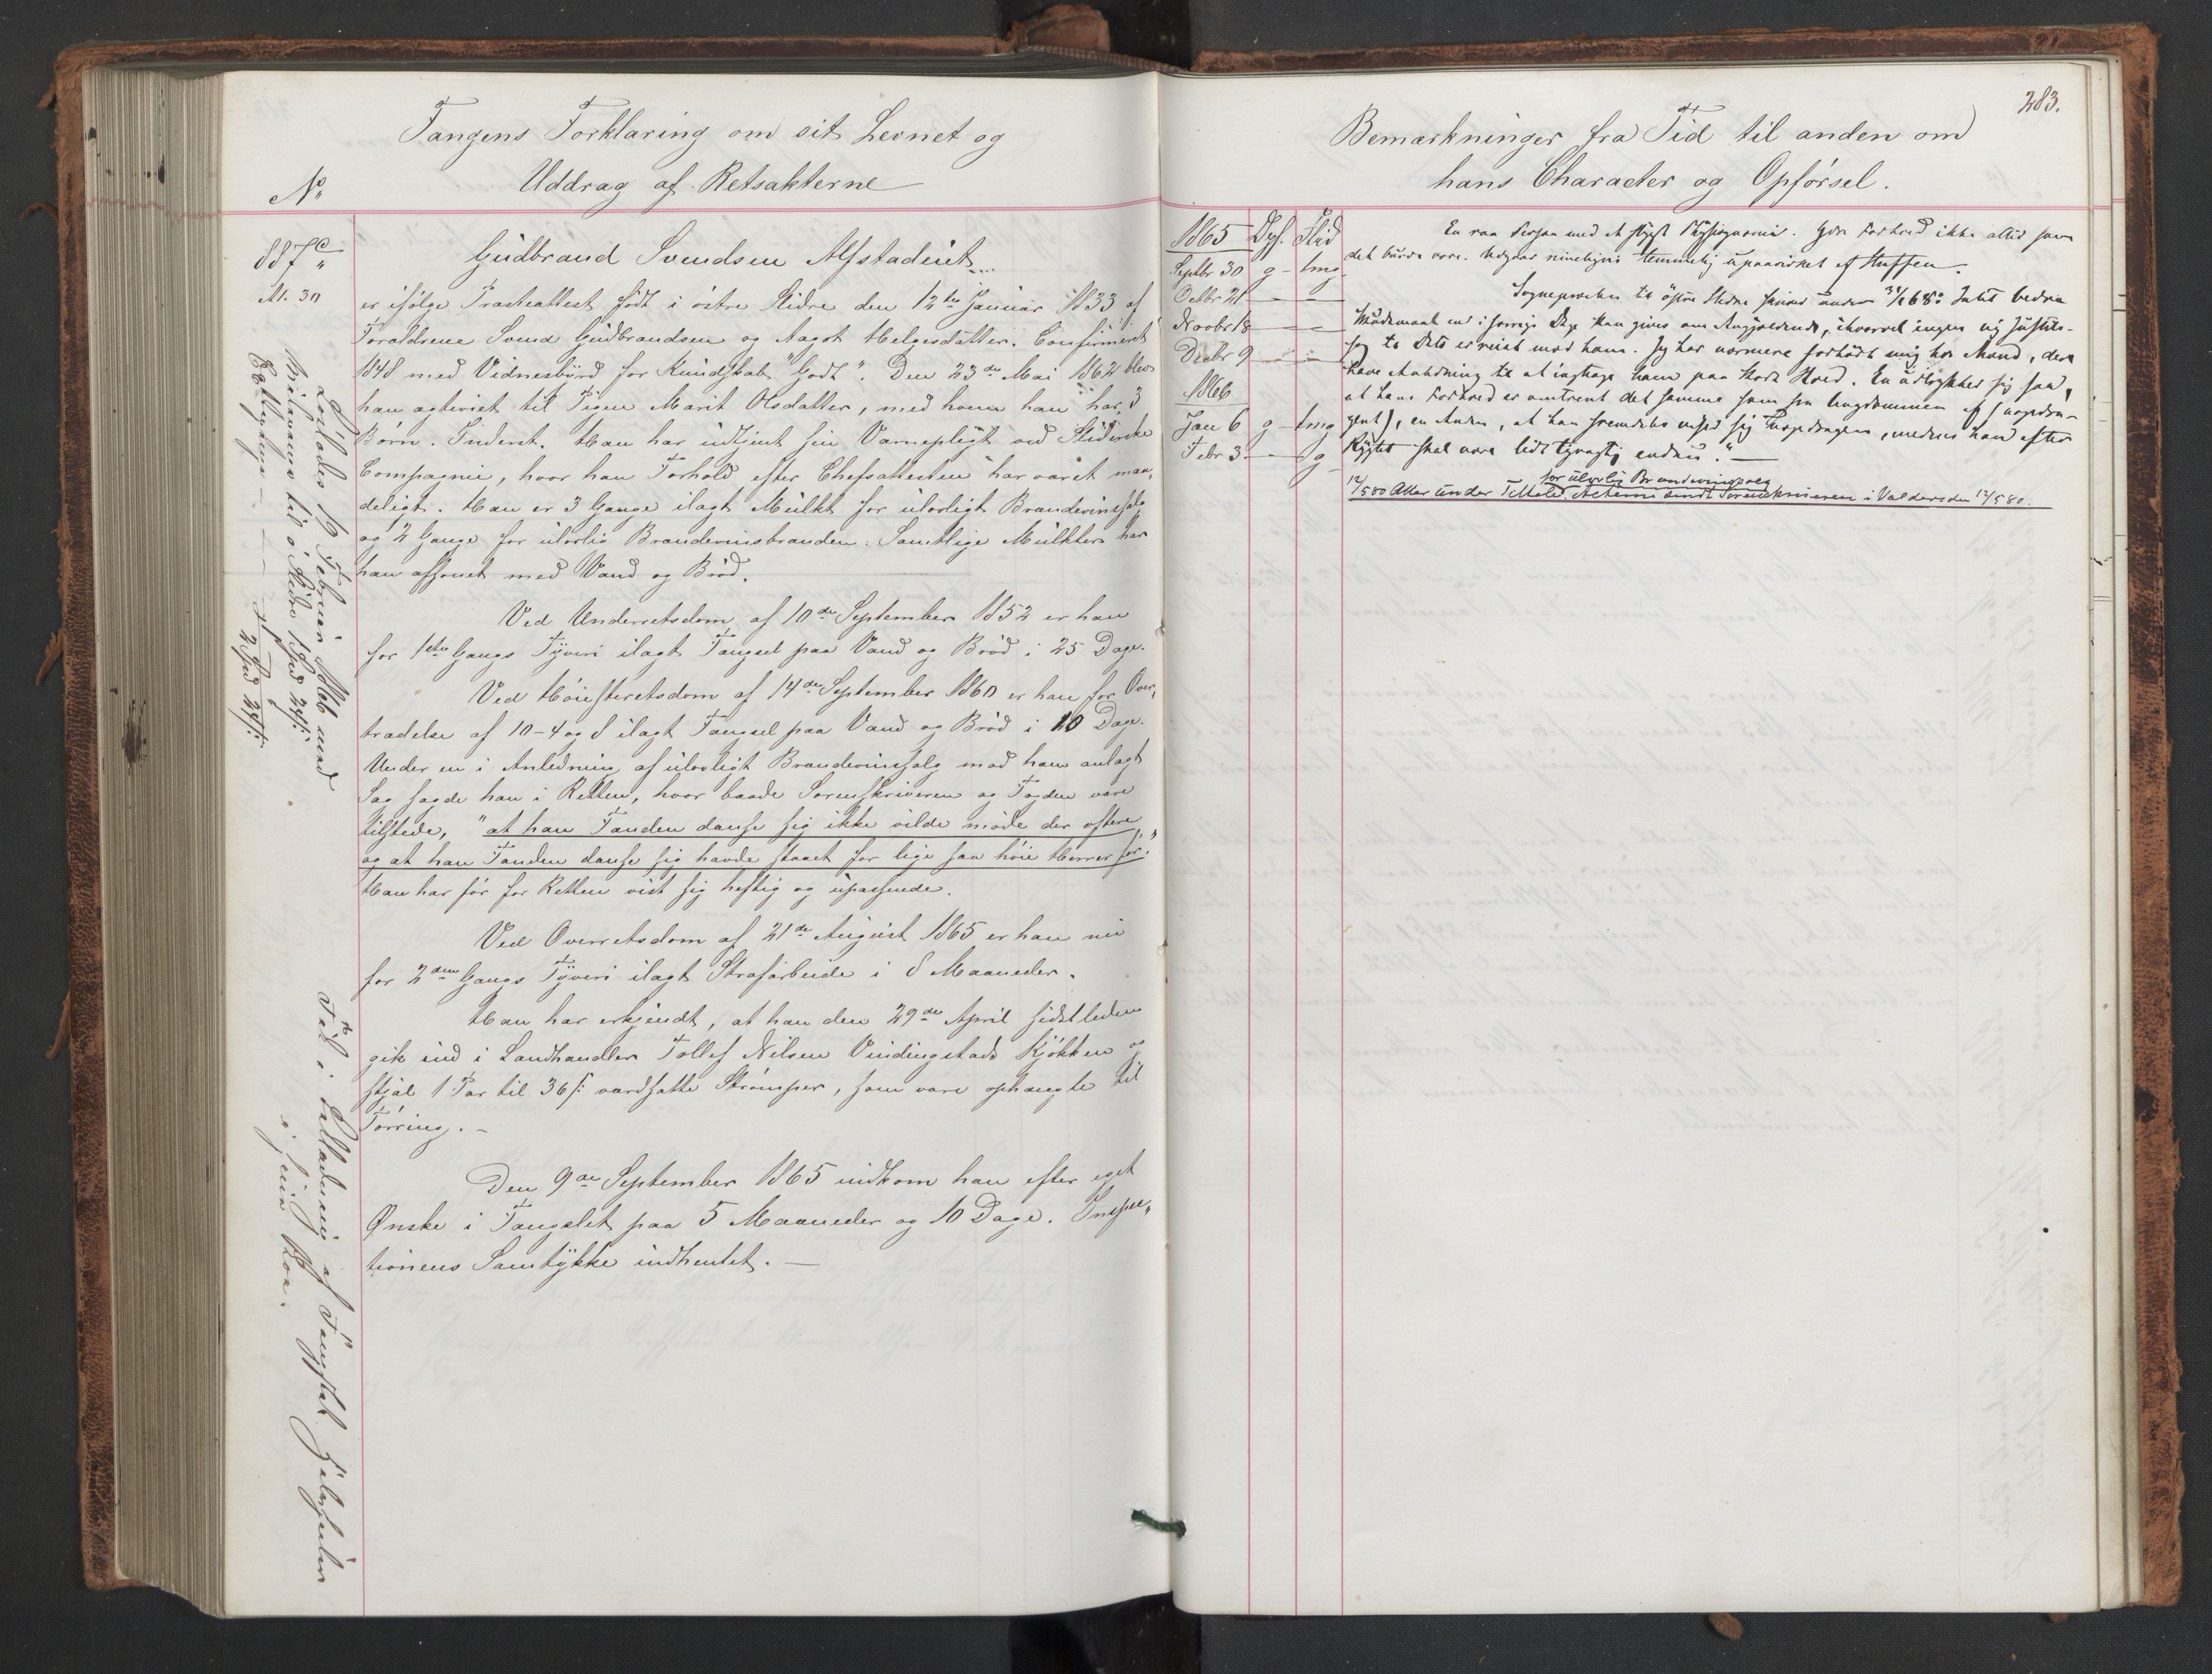 Fangens Forklaring om sit Levnet og
Uddrag af Retsakterne
No
887c
At. 30
Gudbrand Svendsen Alfstadeiet
er ifølge Præsteattest født i østre Slidre den 12te Januar 1833 af
Forældrene Svend Gudbrandsen og Aagot Helgesdatter. Confirmeret
1848 med Vidnesbyrd for Kundskab "Godt". Den 23de Mai 1862 blev
han ægteviet til Pigen Marit Olsdatter, med hvem han har 3
Børn. Inderst. Han har udtjent sin Værnepligt ved Slidreske
Compagnie, hvor han Forhold efter Chefsattesten har været maa-
deligt. Han er 3 Gange ilagt Mulkt for ulovligt Brændevinssalg
og 2 Gange for ulovlig Brændevinsbrænden. Samtlige Mulkter har
han afsonet med Vand og Brød.
Ved Underretsdom af 10de September 1852 er han
for 1ste Gangs Tyveri ilagt Fængsel paa Vand og Brød i 25 Dage.
Ved Høiesteretsdom af 14de September 1860 er han for Over-
trædelse af 10-4 og 8 ilagt Fængsel paa Vand og Brød i 10 Dage.
Under en i Anledning af ulovligt Brændevinssalg mod ham anlagt
Sag sagde han i Retten, hvor baade Sorenskriveren og Fogden vare
tilstede, "at han Fanden danse sig ikke vilde møde der oftere
og at han Fanden danse sig havde staaet for lige saa høie Herrer før."
Han har før for Retten vist sig heftig og upassende.
Ved Overretsdom af 21de August 1865 er han nu
for 2den Gangs Tyveri ilagt Strafarbeide i 8 Maaneder.
Han har erkjendt, at han den 29de April sidstleden
gik ind i Landhandler Tollef Nilsen Vindingstads Kjøkken og
stjal 1 Par til 36 s: værdsatte Strømper, som vare ophængte til
Tørring. -
Den 9de September 1865 indkom han efter eget
Ønske i Fængslet paa 5 Maaneder og 10 Dage. Inspec-
tionens Samtykke indhentet. -
Løslades 19 Februar 1866 med
til ø. Slidre 1 Spd 24 s:
2 Spd 24 s:
Født i af Fængslet
i
283.
Bemærkninger fra Tid til anden om
hans Character og Opførsel.
1865 Opf. Flid
Septbr 30 g - tmg
Octbr 21 — —
Novbr 18 — —
Decbr 9 — —
1866
Jan 6 g - tmg
Febr 3 — g
En raa Person med et stygt Physiognomi. Hans Forhold ikke altid som
det burde være. Udgaar rimeligvis temmelig upaavirket af Straffen.
Sognepresten til østre Slidre skriver under 31/1 68: Intet bedre
Skudsmaal end i forrige Dage kan gives om Angjældende, ihvorvel ingen ny Justits-
sag til Dato er reist mod ham. Jeg har nærmere forhørt mig hos Mænd, der
have Anledning til at iagttage ham paa nært Hold. En udtrykker sig saa,
at hans Forhold er omtrent det samme som fra Ungdommen af (uopdra-
gent), en Anden, at han fremdeles viser sig uopdragen, medens han efter
Rygtet skal være lidt tyvagtig endnu." —
for ulovlig Brændevinssalg
12/5 80 Atter under Tiltale, Acterne sendt Sorenskriveren i Valders den 12/5 80.